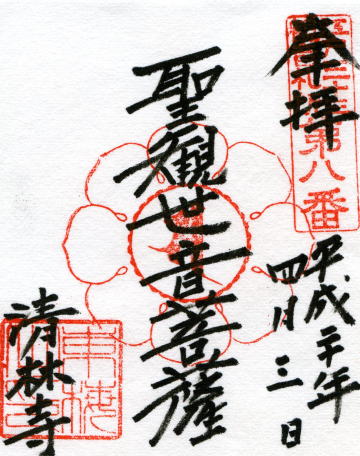 奉拝
第八番
平成二十年
四月三日
聖観世音菩薩
清林寺